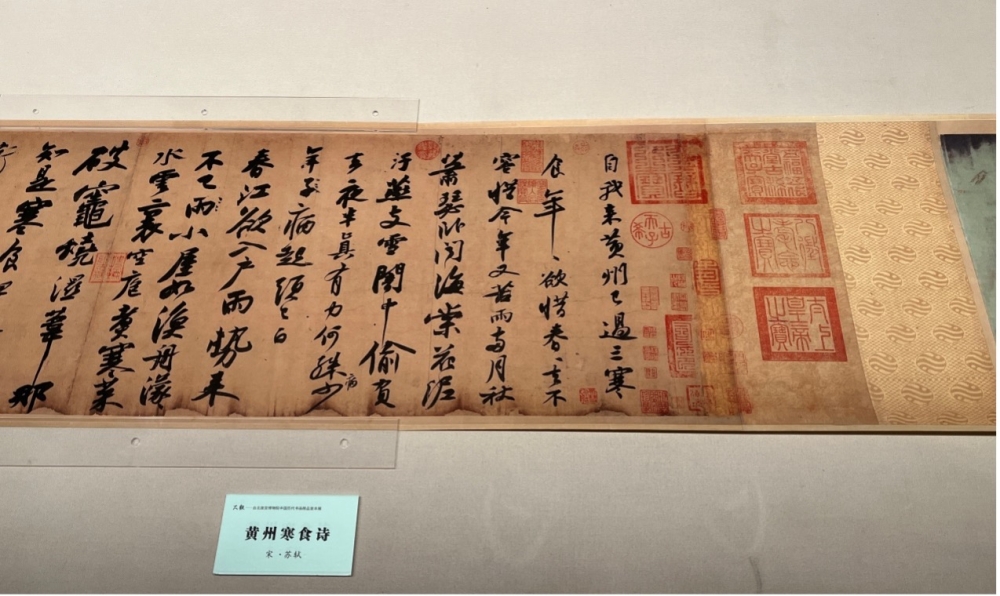 自我来黄州已過三寒
食年〻欲惜春〻去不
容惜今年又苦雨兩月秋
蕭瑟卧聞海棠花泥
汙燕支雪闇中偷負
去夜半真有力何殊病少
年子病起頭已白
春江欲入户雨勢来
不已雨小屋如漁舟濛〻
水雲裏空庖煮寒菜
破竈燒濕葦那
知是寒食
黄州寒食诗
宋·苏轼